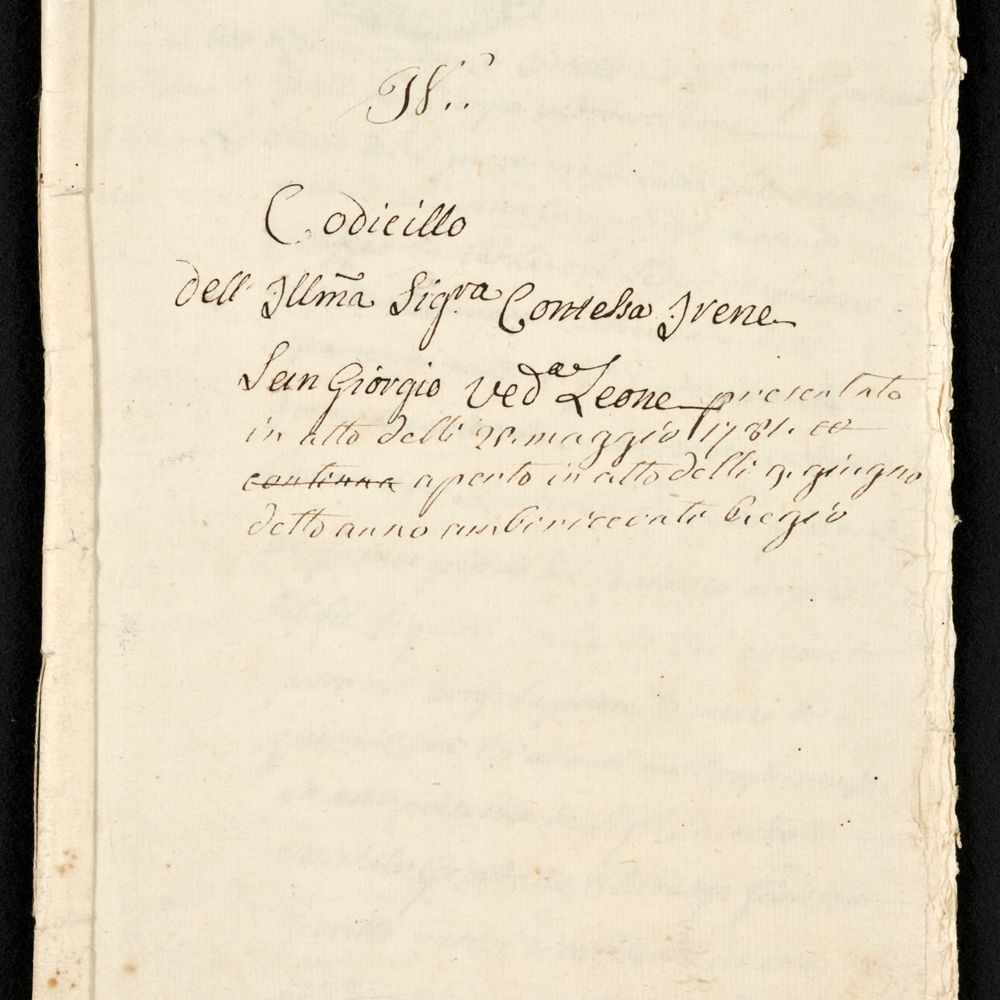 Codicillo
dell' Illm̃a Sig.ra Contessa Irene
San Giorgio Ved.a Leone presentato
in atto delli 28. maggio 1781. ed
continua aperto in atto delli 9. giugno
detto anno ambi ricevuti Regio